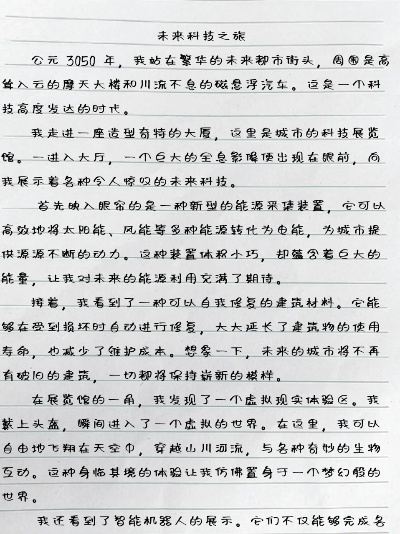 未来科技之旅
公元 3050 年，我站在繁华的未来都市街头，周围是高
耸入云的摩天大楼和川流不息的磁悬浮汽车。这是一个科
技高度发达的时代。
我走进一座造型奇特的大厦，这里是城市的科技展览
馆。一进入大厅，一个巨大的全息影像便出现在眼前，向
我展示着各种令人惊叹的未来科技。
首先映入眼帘的是一种新型的能源采集装置，它可以
高效地将太阳能、风能等多种能源转化为电能，为城市提
供源源不断的动力。这种装置体积小巧，却蕴含着巨大的
能量，让我对未来的能源利用充满了期待。
接着，我看到了一种可以自我修复的建筑材料。它能
够在受到损坏时自动进行修复，大大延长了建筑物的使用
寿命，也减少了维护成本。想象一下，未来的城市将不再
有破旧的建筑，一切都将保持崭新的模样。
在展览馆的一角，我发现了一个虚拟现实体验区。我
戴上头盔，瞬间进入了一个虚拟的世界。在这里，我可以
自由地飞翔在天空中，穿越山川河流，与各种奇妙的生物
互动。这种身临其境的体验让我仿佛置身于一个梦幻般的
世界。
我还看到了智能机器人的展示。它们不仅能够完成各